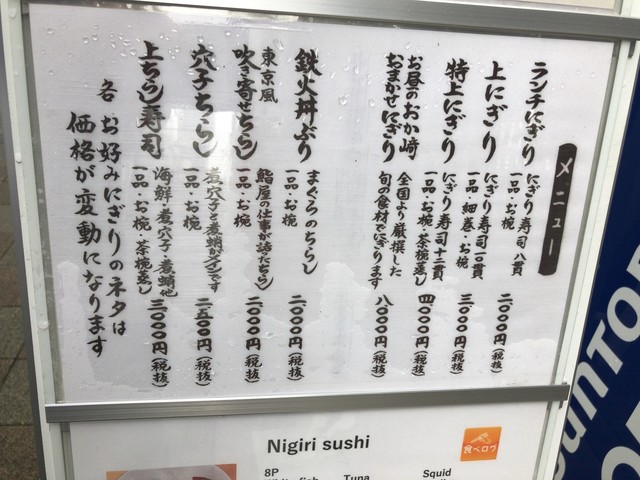 メニュー
ランチにぎり
にぎり寿司八貫
一品・お椀
二〇〇〇円(税抜)
上にぎり
にぎり寿司十一貫
一品・細巻・お椀
三〇〇〇円(税抜)
特上にぎり
にぎり寿司十二貫
一品・お椀・茶椀蒸し
四〇〇〇円(税抜)
お昼のおか﨑
おまかせにぎり
全国より厳撰した
旬の食材でにぎります
八〇〇〇円(税抜)
鉄火丼ぶり
まぐろのちらし
一品・お椀
二〇〇〇円(税抜)
東京風
吹き寄せちらし
鮨屋の仕事が詰だちらし
一品・お椀
二〇〇〇円(税抜)
穴子ちらし
煮穴子と煮蛸がメインです
二五〇〇円(税抜)
上ちらし寿司
海鮮・煮穴子・煮蛸他
一品・お椀・茶椀蒸し
三〇〇〇円(税抜)
各 お好みにぎりのネタは
価格が変動になります
Nigiri sushi
食べログ
8P
Tuna
Squid
SUNTOR